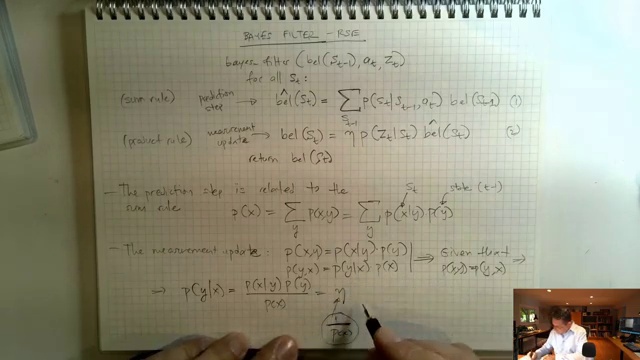 BAYES FILTER - RSE
bayes filter (bel(S_{t-1}), a_t, Z_t)
for all S_t:
(sum rule) prediction step → bel^(S_t) = Σ_{S_{t-1}} p(S_t|S_{t-1}, a_t) bel(S_{t-1}) (1)
(product rule) measurement update → bel(S_t) = η p(Z_t|S_t) bel^(S_t) (2)
return bel(S_t)
S_t state (t-1)
- The prediction step is related to the
sum rule p(x) = Σ_y p(x,y) = Σ_y p(x|y) p(y)
- The measurement update: p(x,y) = p(x|y) p(y) ⟹ Given that ⟹
p(y,x) = p(y|x) p(x) p(x,y) = p(y,x)
⟹ p(y|x) = p(x|y) p(y) / p(x) = η
1 / p(x)